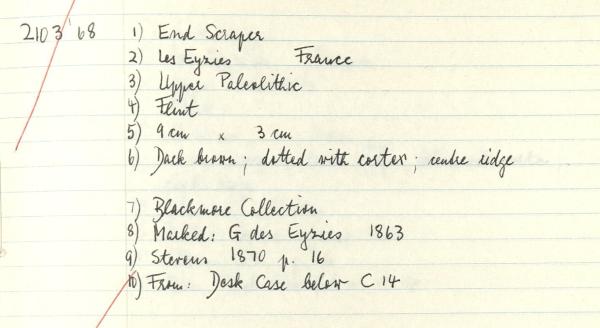 2103'68 1) End Scraper
2) Les Eyzies France
3) Upper Paleolithic
4) Flint
5) 9 cm x 3 cm
6) Dark brown; dotted with cortex; centre ridge
7) Blackmore Collection
8) Marked: G des Eyzies 1863
9) Stevens 1870 p. 16
10) From: Desk Case below C 14